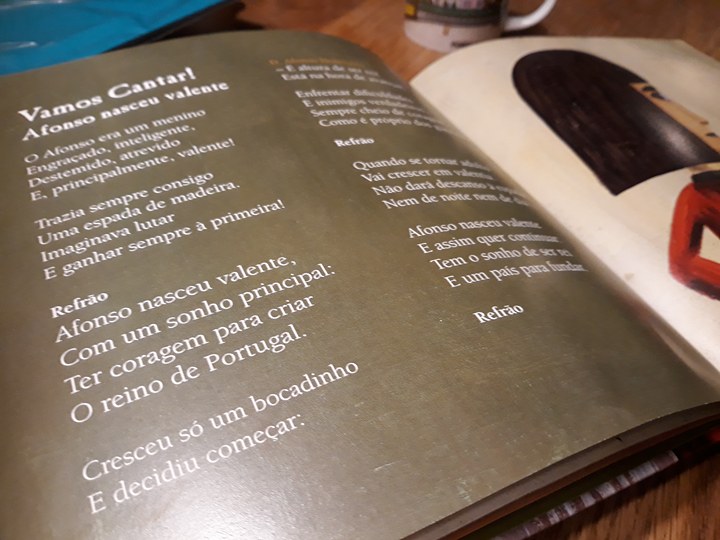 Vamos Cantar!
Afonso nasceu valente
O Afonso era um menino
Engraçado, inteligente,
Destemido, atrevido
E, principalmente, valente!
Trazia sempre consigo
Uma espada de madeira.
Imaginava lutar
E ganhar sempre à primeira!
Refrão
Afonso nasceu valente,
Com um sonho principal:
Ter coragem para criar
O reino de Portugal.
Cresceu só um bocadinho
E decidiu começar:
– É altura de ser rei
Está na hora de
Enfrentar dificuldades
E inimigos
Sempre cheio de
Como é próprio dos
Refrão
Quando se tornar
Vai crescer em valentia
Não dará descanso à
Nem de noite nem de dia
Afonso nasceu valente
E assim quer continuar
Tem o sonho de ser rei
E um país para fundar.
Refrão